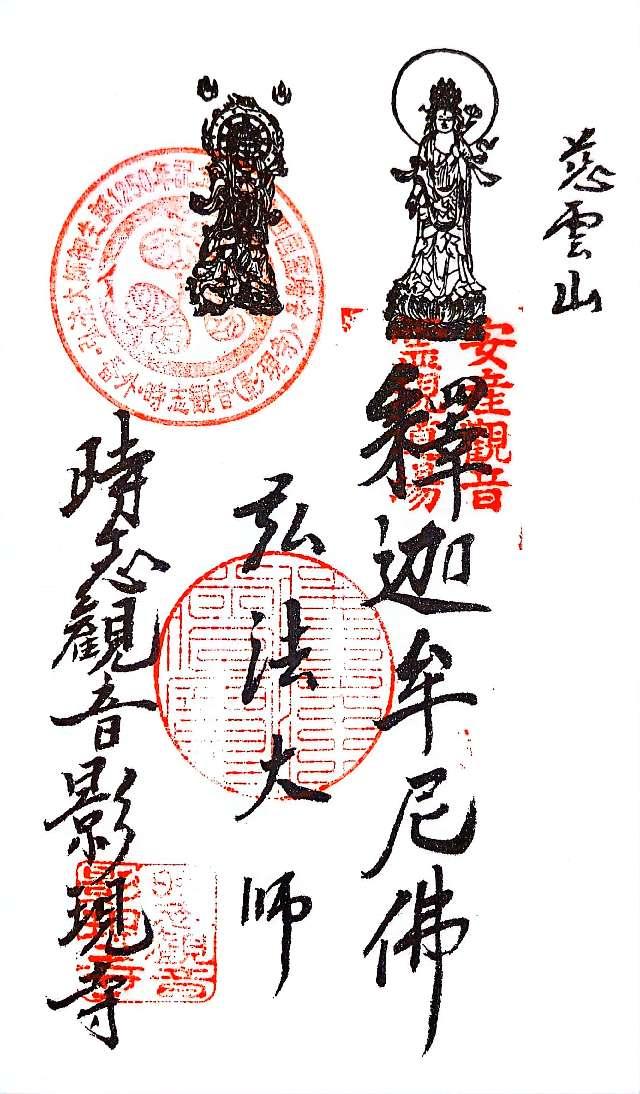 慈雲山
安産觀音
釋迦牟尼佛
弘法大師
弘法大師御生誕1250年記
番外・時志觀音(影現寺)
時志觀音影現寺
時志觀音
影現寺